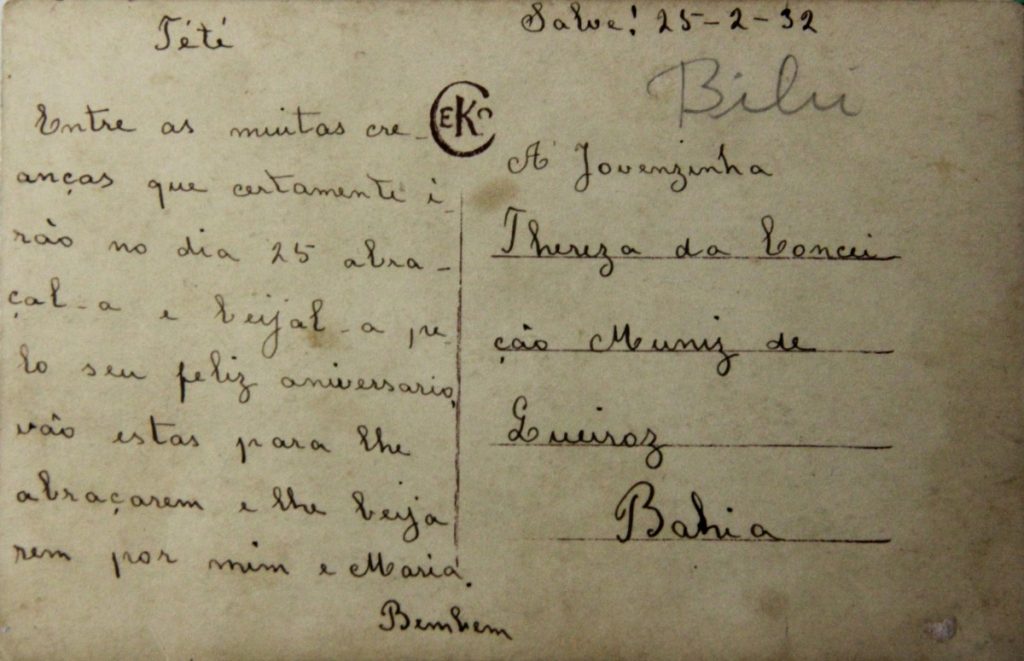 Tété
Entre as muitas cre-
anças que certamente i-
rão no dia 25 abra-
çal-a e beijal-a pe-
lo seu feliz aniversario,
vão estas para lhe
abraçarem e lhe beija
rem por mim e Maria.
Bembem
EKC
Salve! 25-2-32
Bilú
A' Jovenzinha
Thereza da Concei
ção Muniz de
Queiroz
Bahia